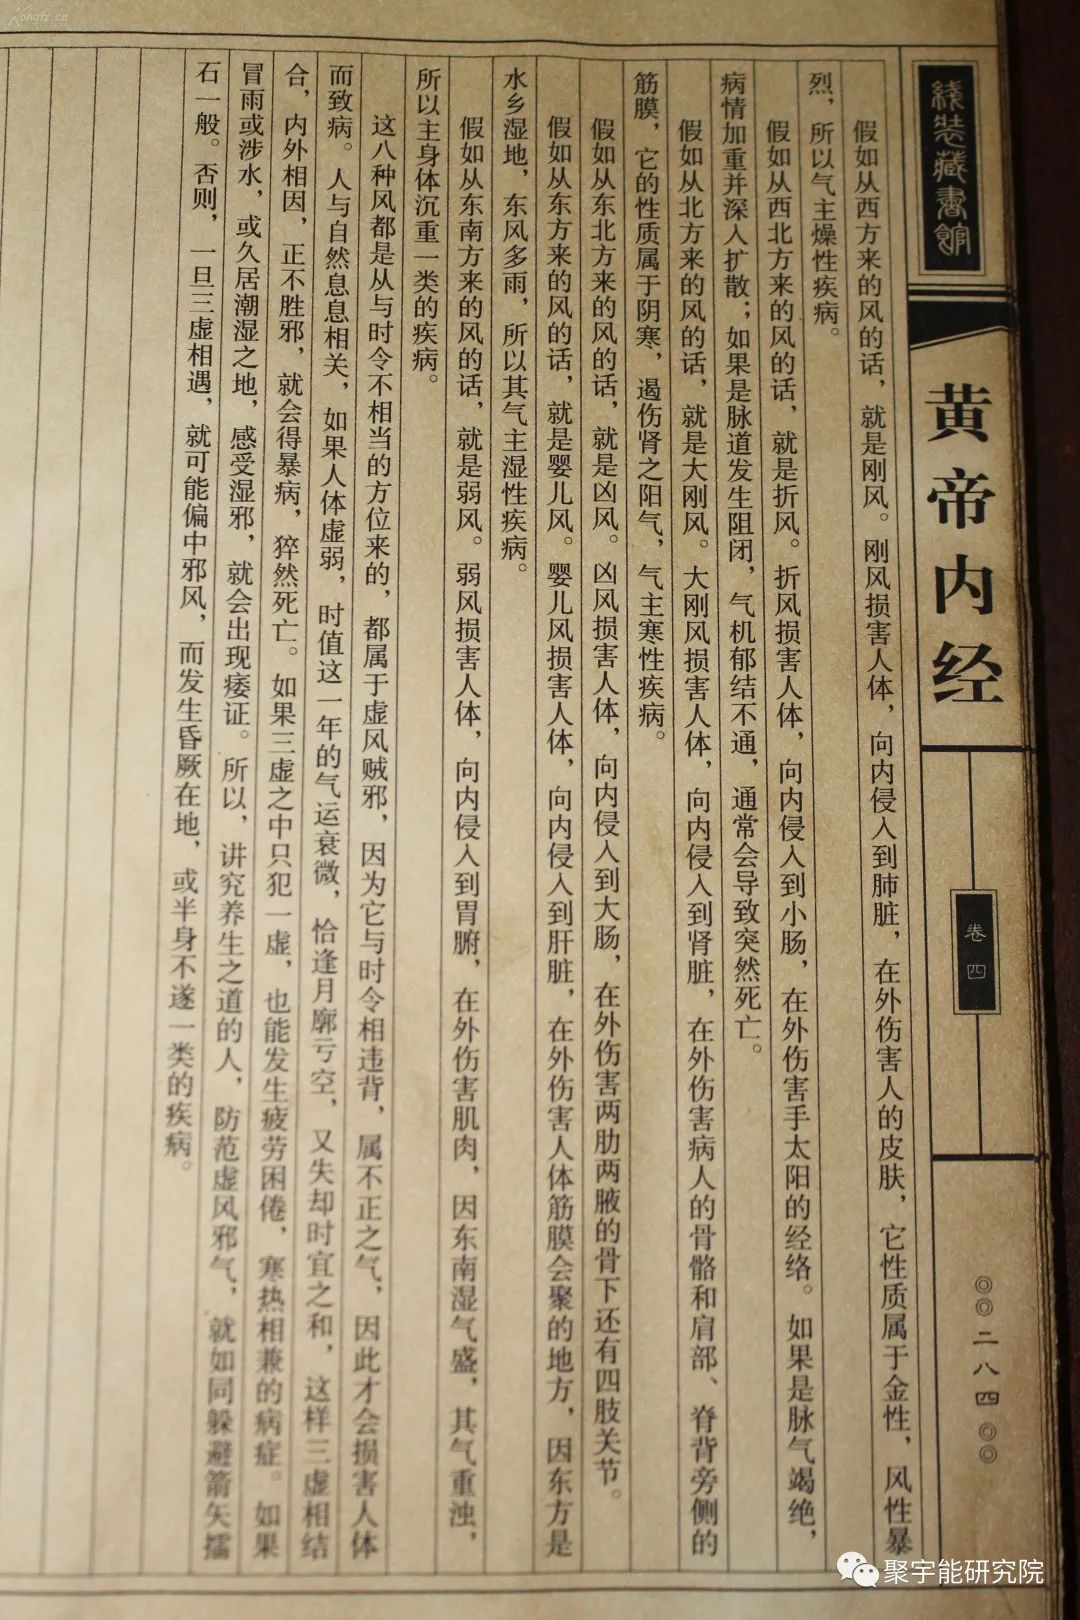 线装藏书馆
黄帝内经
卷四
◎◎二八四◎◎
假如从西方来的风的话，就是刚风。刚风损害人体，向内侵入到肺脏，在外伤害人的皮肤，它性质属于金性，风性暴
烈，所以气主燥性疾病。
假如从西北方来的风的话，就是折风。折风损害人体，向内侵入到小肠，在外伤害手太阳的经络。如果是脉气竭绝，
病情加重并深入扩散；如果是脉道发生阻闭，气机郁结不通，通常会导致突然死亡。
假如从北方来的风的话，就是大刚风。大刚风损害人体，向内侵入到肾脏，在外伤害病人的骨骼和肩部、脊背旁侧的
筋膜，它的性质属于阴寒，遏伤肾之阳气，气主寒性疾病。
假如从东北方来的风的话，就是凶风。凶风损害人体，向内侵入到大肠，在外伤害两肋两腋的骨下还有四肢关节。
假如从东方来的风的话，就是婴儿风。婴儿风损害人体，向内侵入到肝脏，在外伤害人体筋膜会聚的地方，因东方是
水乡湿地，东风多雨，所以其气主湿性疾病。
假如从东南方来的风的话，就是弱风。弱风损害人体，向内侵入到胃腑，在外伤害肌肉，因东南湿气盛，其气重浊，
所以主身体沉重一类的疾病。
这八种风都是从与时令不相当的方位来的，都属于虚风贼邪，因为它与时令相违背，属不正之气，因此才会损害人体
而致病。人与自然息息相关，如果人体虚弱，时值这一年的气运衰微，恰逢月廓亏空，又失却时宜之和，这样三虚相结
合，内外相因，正不胜邪，就会得暴病，猝然死亡。如果三虚之中只犯一虚，也能发生疲劳困倦，寒热相兼的病症。如果
冒雨或涉水，或久居潮湿之地，感受湿邪，就会出现痿证。所以，讲究养生之道的人，防范虚风邪气，就如同躲避箭矢擂
石一般。否则，一旦三虚相遇，就可能偏中邪风，而发生昏厥在地，或半身不遂一类的疾病。
Kongfz.cn
聚宇能研究院